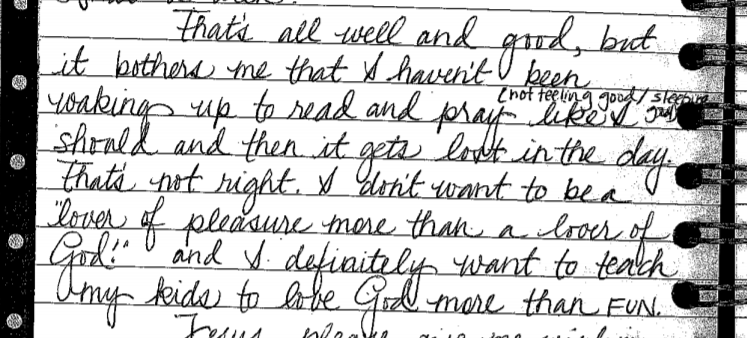 That's all well and good, but
it bothers me that I haven't been
(not feeling good/ sleeping
waking up to read and pray like I
should and then it gets lost in the day.
That's not right. I don't want to be a
"lover of pleasure more than a lover of
God!" and I definitely want to teach
my kids to love God more than FUN.
Jesus please give me